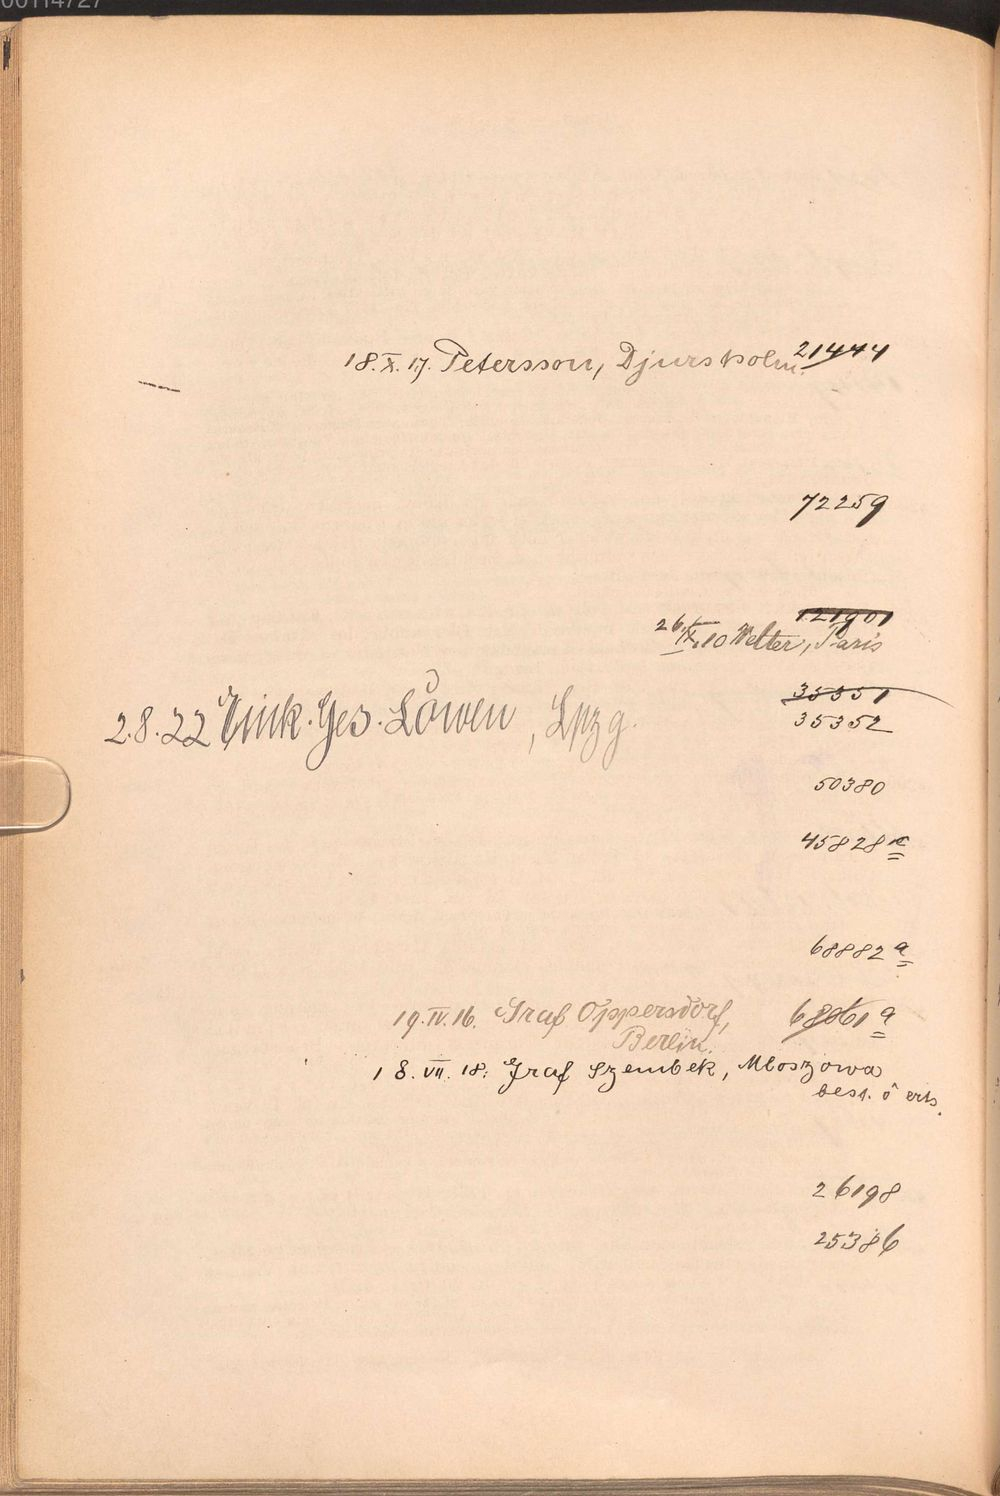 00114727
18.X.17. Petersson, Djursholm. 21444
72259
121901
26./IX.10 Welter, Paris
35351
2.8.22 Eink. Ges. Löwen, Lpzg. 35352
50380
45828 c
68882 a
19.IV.16. Graf Oppersdorf, 68061 a
Berlin.
18.VII.18: Graf Szembek, Mloszowa
best. o erh.
26198
25386